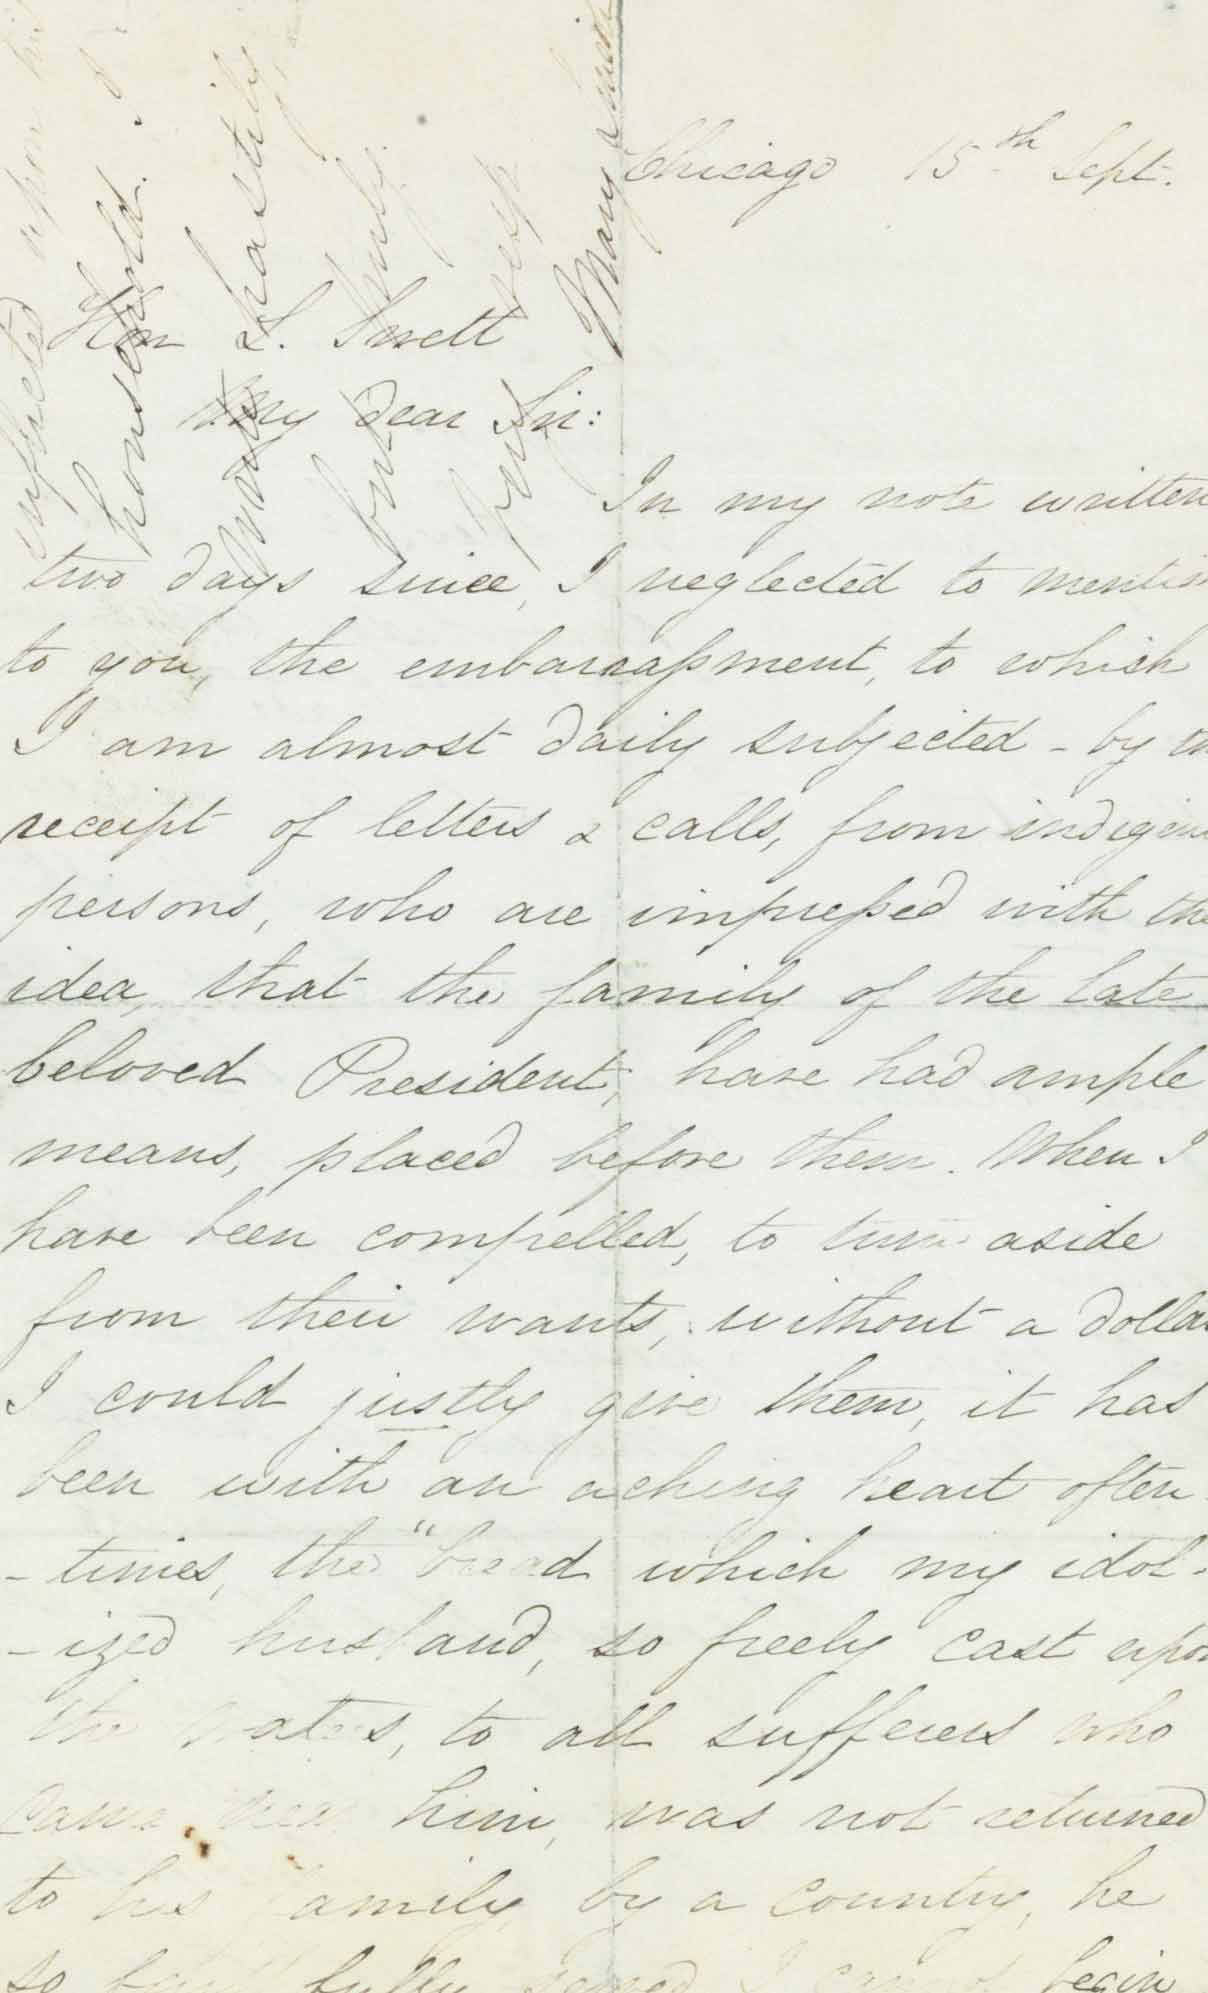 Chicago 15th Sept.
Hon L. Swett
My dear Sir:
In my note written
two days since, I neglected to mention
to you, the embarrassment, to which
I am almost daily subjected - by
receipt of letters & calls, from indigent
persons, who are impressed with the
idea, that the family of the late
beloved President, have had ample
means, placed before them. When I
have been compelled, to turn aside
from their wants, without a dollar
I could justly give them, it has
been with an aching heart often-
-times, the "bread which my idol-
-ized husband, so freely cast upon
the waters, to all sufferers who
came near him, was not returned
to his family, by a country, he
so served I cannot begin
inflicted upon
household.
hastily
but
truly
your
Mary Lincoln